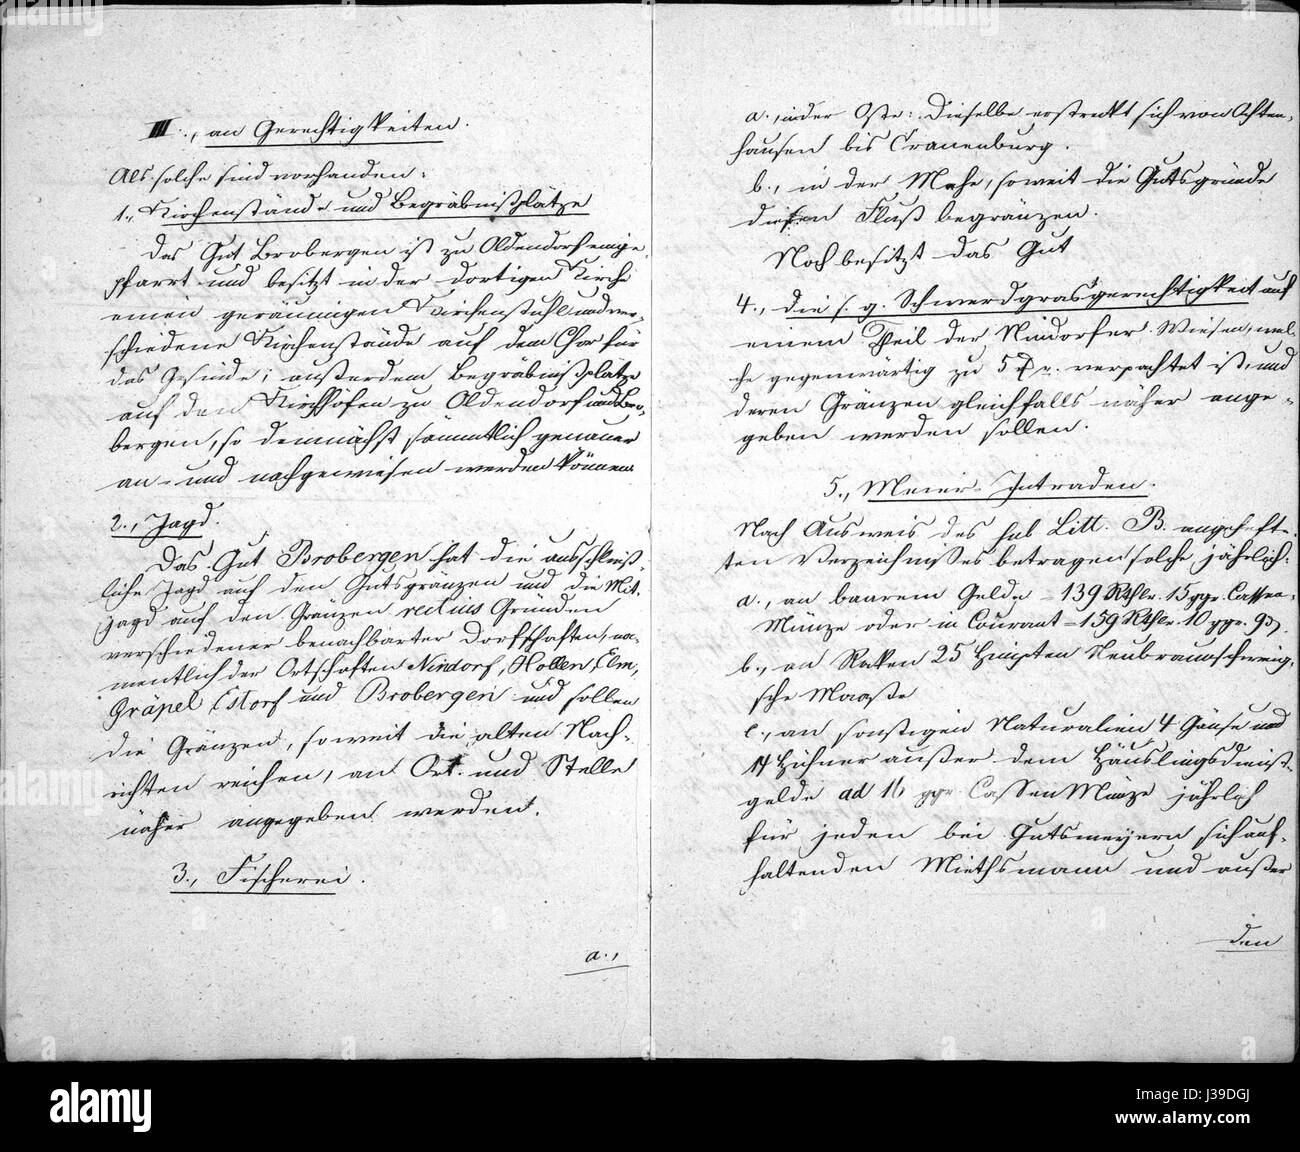 III., an Gerechtigkeiten.
Als solche sind vorhanden:
1., Kirchenstände und Begräbnißplätze
Das Gut Brobergen ist zu Oldendorf einge-
pfarrt und besitzt in der dortigen Kirche
einen geräumigen Kirchenstuhl und ver-
schiedene Kirchenstände auf dem Chor für
das Gesinde; außerdem Begräbnißplätze
auf den Kirchhöfen zu Oldendorf und Bro-
bergen, so demnächst sämmtlich genauer
an- und nachgewiesen werden können.
2., Jagd.
Das Gut Brobergen hat die ausschließ-
liche Jagd auf den Gutsgränzen und die Mit-
jagd auf den Gränzen rectius Gründen
verschiedener benachbarter Dorfschaften, na-
mentlich der Ortschaften Nindorf, Hollen, Elm,
Gräpel Estorf und Brobergen und sollen
die Gränzen, soweit die alten Nach-
richten reichen, an Ort und Stelle
näher angegeben werden.
3., Fischerei.
a.,
a., in der Oste: Dieselbe erstreckt sich von Ochten-
hausen bis Cranenburg.
b., in der Mehe, soweit die Gutsgründe
diesen Fluß begränzen.
Noch besitzt das Gut
4., die s. g. Schwerdgrasgerechtigkeit auf
einem Theil der Nindorfer Wiesen, wel-
che gegenwärtig zu 5 verpachtet ist, und
deren Gränzen gleichfalls näher ange-
geben werden sollen.
5., Meier-Intraden.
Nach Ausweis des sub Litt. B. angehefte-
ten Verzeichnisses betragen solche jährlich:
a., an baarem Gelde = 139 Rthlr. 15 ggr. Cassen-
Münze oder in Courant = 159 Rthlr. 10 ggr. 9
b., an Rocken 25 Himpten Neubraunschweig-
sche Maaße
c., an sonstigen Naturalien 4 Gänse und
14 Hühner außer dem Häuslingsdienst-
gelde ad 16 ggr. Cassen Münze jährlich
für jeden bei Gutsmeyern sich auf-
haltenden Miethsmann und außer
den
alamy
J39DGJ